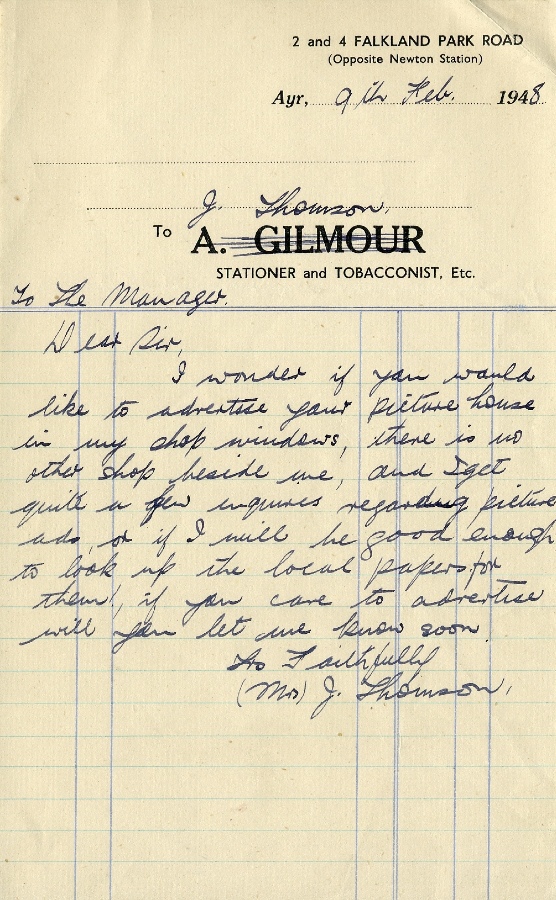 2 and 4 FALKLAND PARK ROAD
(Opposite Newton Station)
Ayr, 9th Feb. 1948
J. Thomson.
To A. GILMOUR
STATIONER and TOBACCONIST, Etc.
To The Manager.
Dear Sir,
I wonder if you would
like to advertise your Picture house
in my shop windows, there is no
other shop beside me, and I get
quite a few enquires regarding picture
ads, or if I will be good enough
to look up the local papers for
them!, if you care to advertise
will you let me know soon
Yrs Faithfully
(Mrs) J. Thomson.